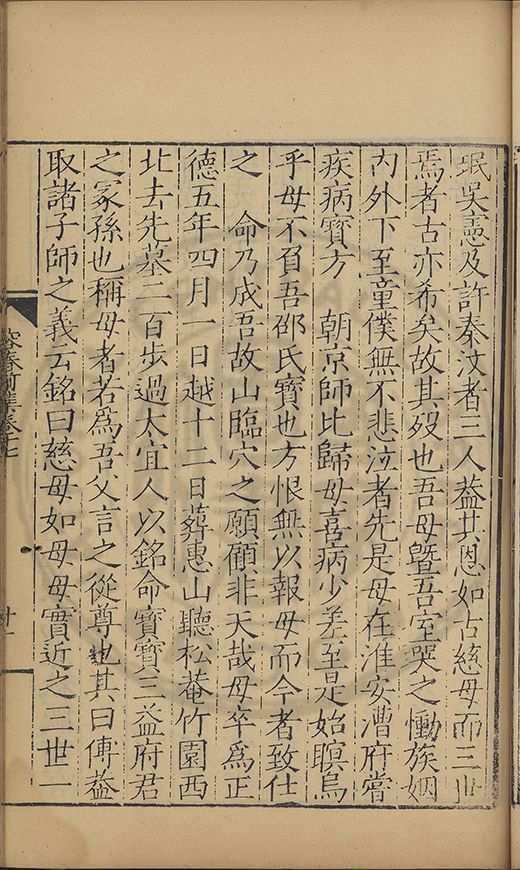 珉吳憲及許秦汶者三人葢其恩如古慈母而三世
焉者古亦希矣故其歿也吾母暨吾室哭之慟族姻
內外下至童僕無不悲泣者先是母在淮安漕府嘗
疾病寶方　朝京師比歸母喜病少差至是始瞑烏
乎母不負吾邵氏寶也方恨無以報母而今者致仕
之　命乃成吾故山臨穴之願顧非天哉母卒爲正
德五年四月一日越十二日葬惠山聽松菴竹園西
北去先墓二百步過太宜人以銘命寶寶三益府君
之冢孫也稱母者若爲吾父言之從尊也其曰傅葢
取諸子師之義云銘曰慈母如母母實近之三世一
容春前集卷十七